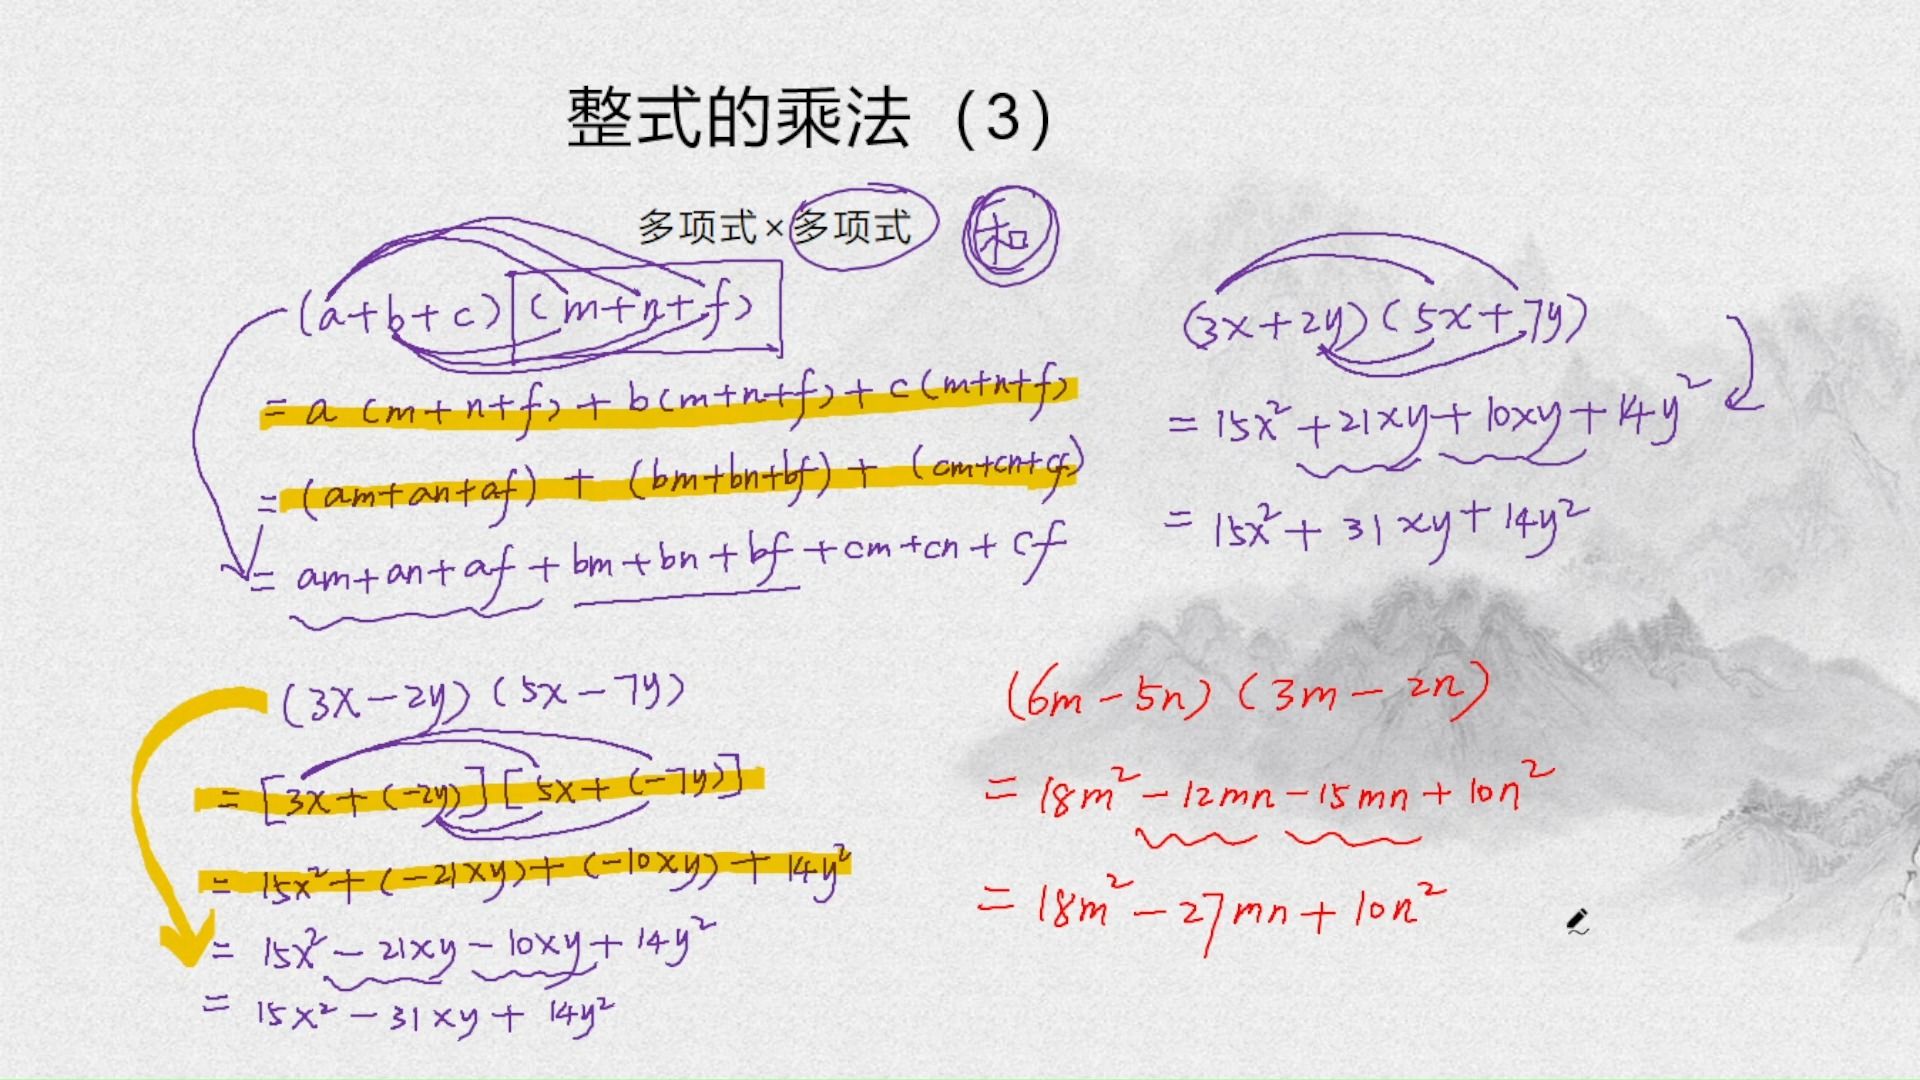 整式的乘法（3）
多项式×多项式 和
(a+b+c)(m+n+f)
= a(m+n+f)+b(m+n+f)+c(m+n+f)
= (am+an+af)+(bm+bn+bf)+(cm+cn+cf)
= am+an+af+bm+bn+bf+cm+cn+cf
(3x+2y)(5x+7y)
= 15x²+21xy+10xy+14y²
= 15x²+31xy+14y²
(3x-2y)(5x-7y)
= [3x+(-2y)][5x+(-7y)]
= 15x²+(-21xy)+(-10xy)+14y²
= 15x²-21xy-10xy+14y²
= 15x²-31xy+14y²
(6m-5n)(3m-2n)
= 18m²-12mn-15mn+10n²
= 18m²-27mn+10n²